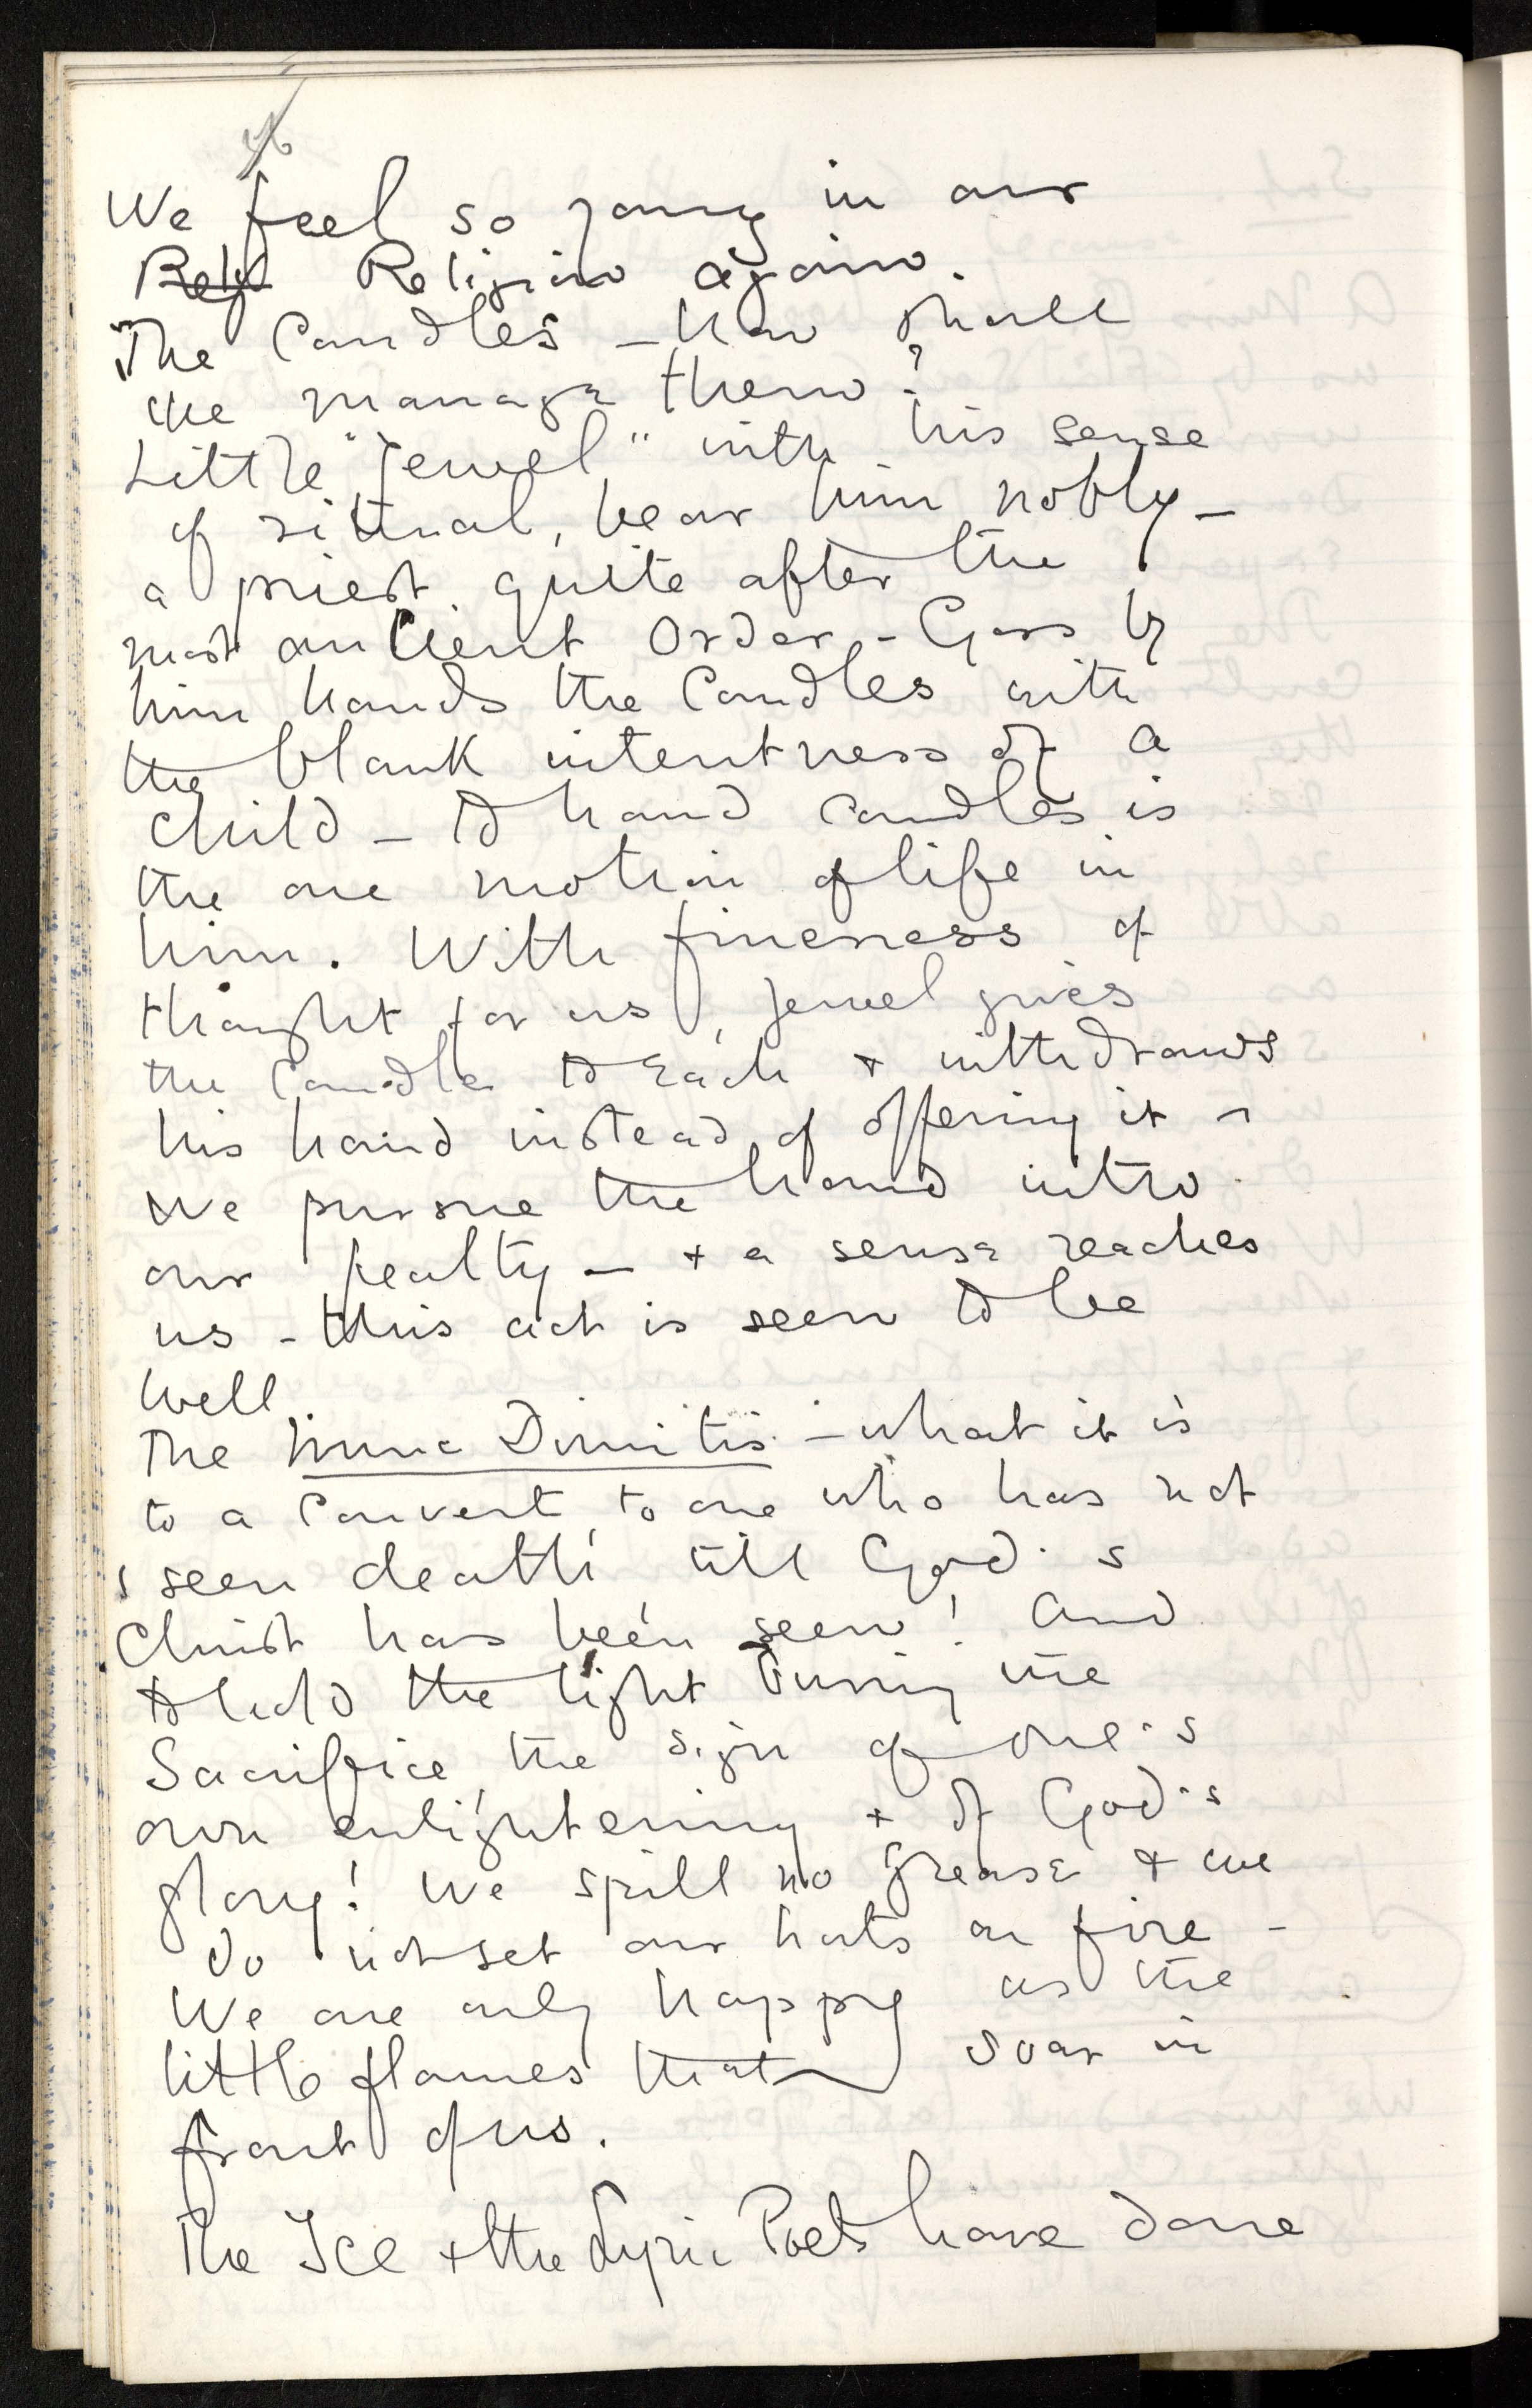 46
We feel so young in our
Relgi Religion again.
"The Candles – how shall
we manage them?"
Little "Jewel" with his sense
of ritual, bears him nobly –
a priest quite after the
most ancient Order – Goss by
him hands the Candles with
the blank intentness of a
child – to hand candles is
the one motion of life in
him. With fineness of
thought for us, Jewel gives
the Candle to each + withdraws
his hand instead of offering it –
We pursue the hand into
our fealty – + a sense reaches
us – this act is seen to be
well.
The Nunc Dimitis – what it is
to a Convert, to one who has not
'seen death' till God's
Christ has been seen! And
to hold the light during the
Sacrifice, the sign of one's
own enlightening + of God's
glory! We spill no grease + we
do not set our hats on fire –
We are only happy as the
little flames that soar in
front of us.
The Ice + the Lyric Poets have done